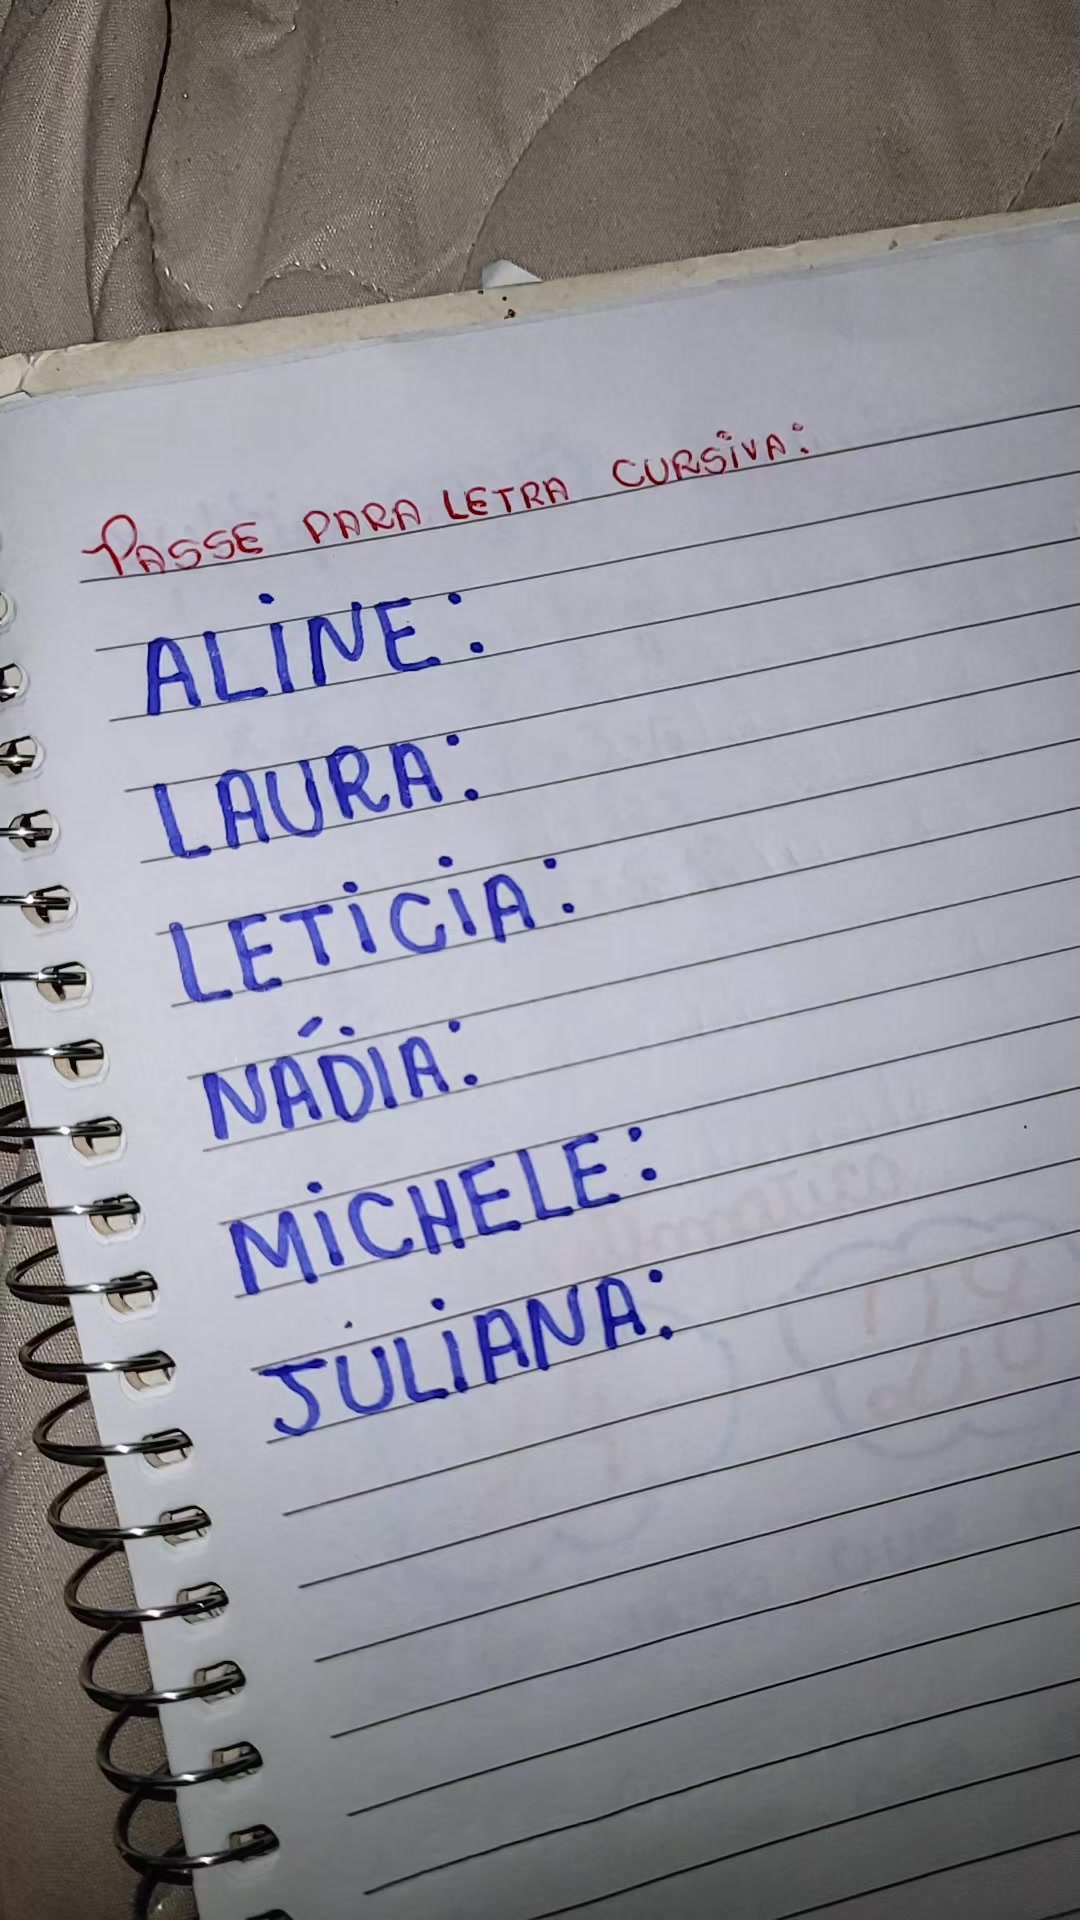 PASSE PARA LETRA CURSIVA:
ALINE:
LAURA:
LETICIA:
NÁDIA:
MICHELE:
JULIANA: